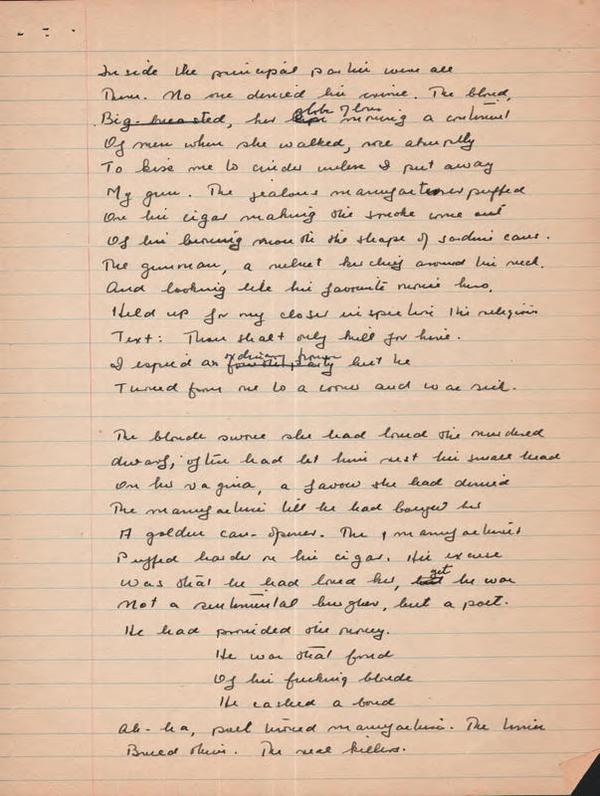 Inside the principal parties were all
There. No one denied his crime. The blond,
Big-breasted, her globe of love moving a continent
Of men when she walked, rose abruptly
To kiss me to cinder unless I put away
My gun. The jealous manufacturer puffed
On his cigar making the smoke come out
Of his burning mouth the shape of sardine cans.
The gunman, a velvet kerchief around his neck,
And looking like his favourite movie hero,
Held up for my closer inspection the religious
Text: Thou shalt only kill for hire.
I espied an ordinary but he
Turned from me to a corner and was sick.

The blonde swore she had loved the murdered
dwarf, often had let him rest his small head
On her vagina, a favour she had denied
The manufacturer till he had bought her
A golden can-opener. The manufacturer
Puffed harder on his cigar. His excuse
Was that he had loved her, yet he was
Not a sentimental burgher, but a poet.
He had provided the money.
He was that fond
Of his fucking blonde
He cashed a bond
Ah-ha, poet turned manufacturer. The
Breed this. The real killers.